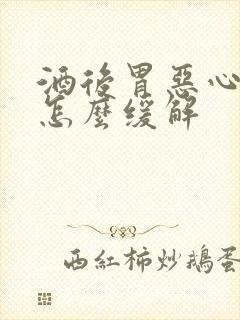 酒後胃惡心
怎麼缓解
西紅柿炒鵝蛋